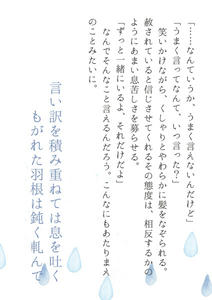 「……なんていうか、うまく言えないんだけど」
「うまく言ってなんて、いつ言った？」
笑いかけながら、くしゃりとやわらかに髪をなぜられる。
赦されていると信じさせてくれるその態度は、相反するかの
ようにあまい息苦しさを募らせる。
「ずっと一緒にいるよ、それだけだよ」
なんでそんなこと言えるんだろう。こんなにもあたりまえ
のことみたいに。
言い訳を積み重ねては息を吐く
もがれた羽根は鈍く軋んで